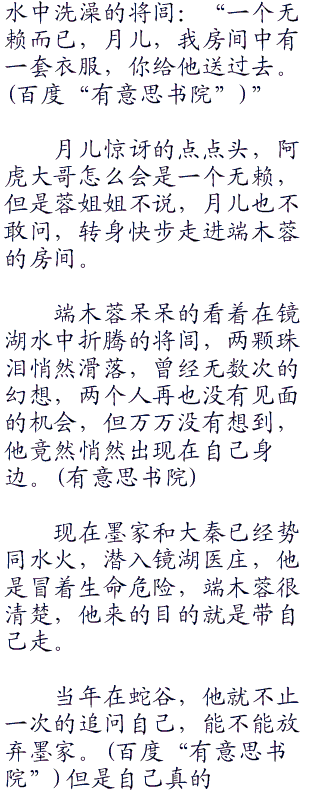 水中洗澡的将闾：“一个无
赖而已，月儿，我房间中有
一套衣服，你给他送过去。
(百度“有意思书院”)”
月儿惊讶的点点头，阿
虎大哥怎么会是一个无赖，
但是蓉姐姐不说，月儿也不
敢问，转身快步走进端木蓉
的房间。
端木蓉呆呆的看着在镜
湖水中折腾的将闾，两颗珠
泪悄然滑落，曾经无数次的
幻想，两个人再也没有见面
的机会，但万万没有想到，
他竟然悄然出现在自己身
边。(有意思书院)
现在墨家和大秦已经势
同水火，潜入镜湖医庄，他
是冒着生命危险，端木蓉很
清楚，他来的目的就是带自
己走。
当年在蛇谷，他就不止
一次的追问自己，能不能放
弃墨家。(百度“有意思书
院”)但是自己真的